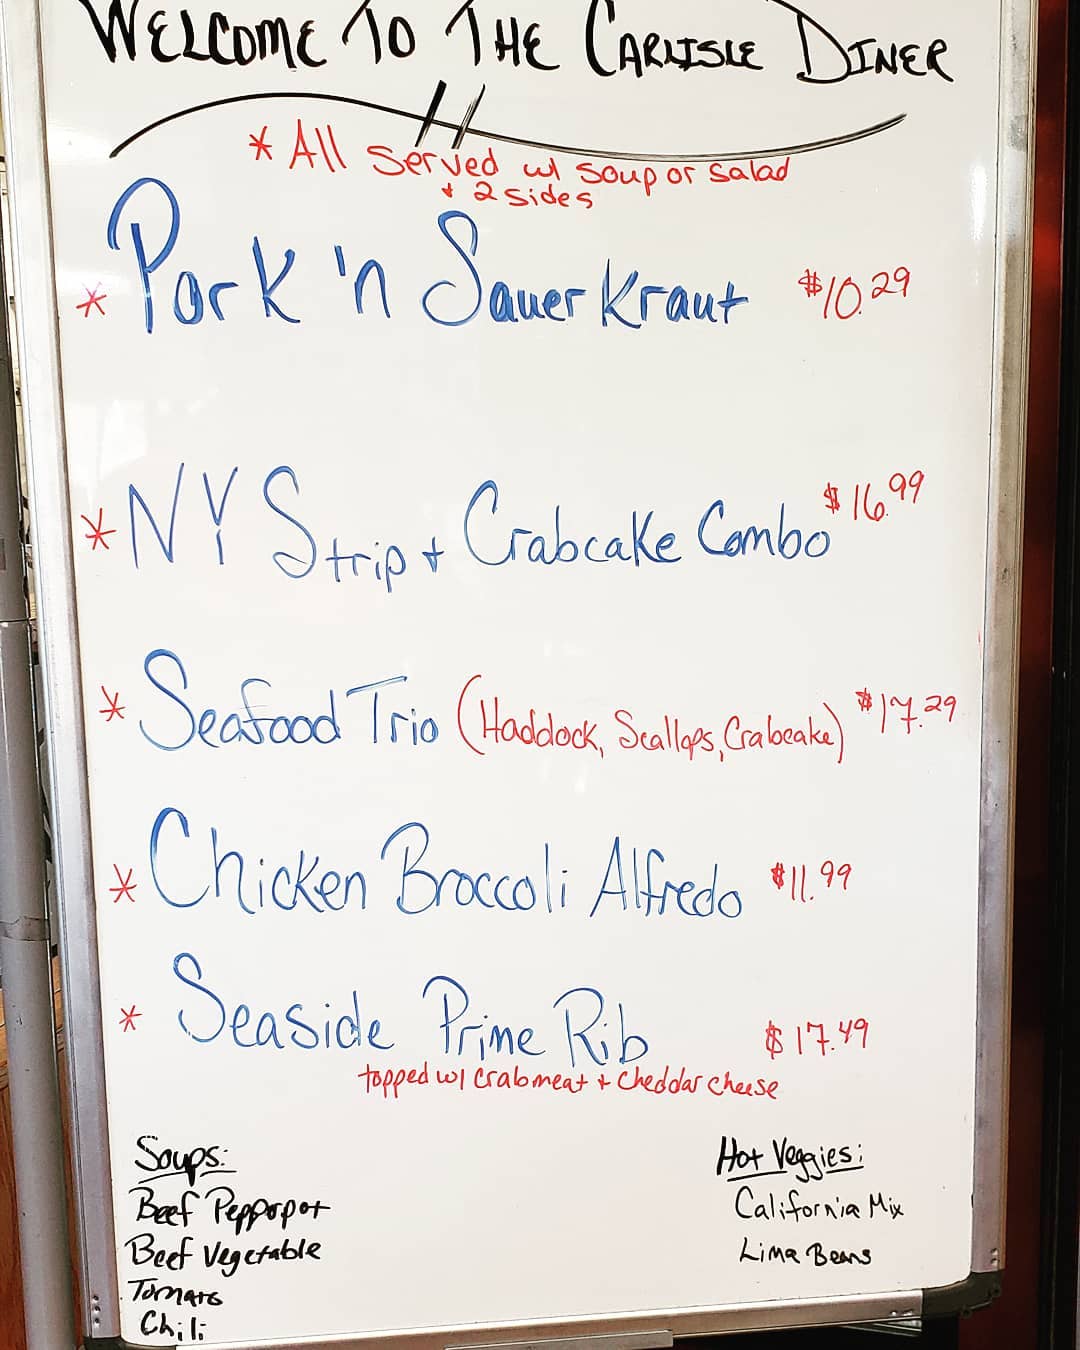 WELCOME TO THE CARLISLE DINER
* All served w/ soup or salad
+ 2 sides
* Pork 'n Sauerkraut $10.29
* NY Strip + Crabcake Combo $16.99
* Seafood Trio (Haddock, Scallops, Crabcake) $17.29
* Chicken Broccoli Alfredo $11.99
* Seaside Prime Rib $17.49
topped w/ crabmeat + cheddar cheese
Soups:
Beef Pepperpot
Beef Vegetable
Tomato
Chili
Hot Veggies:
California Mix
Lima Beans